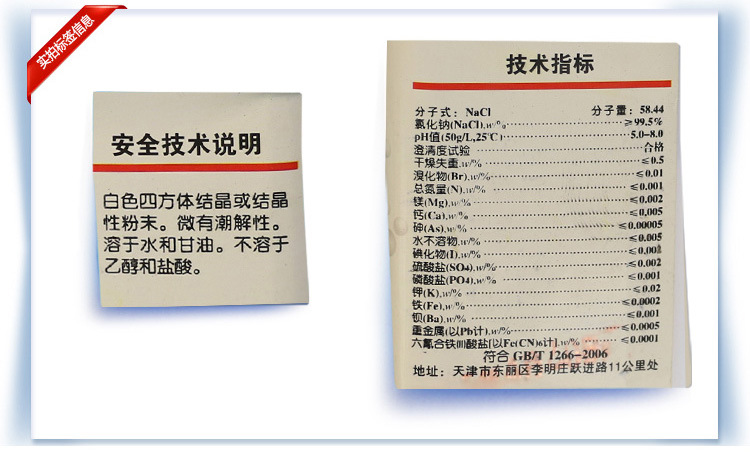 实拍标签信息
安全技术说明
白色四方体结晶或结晶
性粉末。微有潮解性。
溶于水和甘油。不溶于
乙醇和盐酸。
技术指标
分子式：NaCl 分子量：58.44
氯化钠(NaCl),w/% ≥99.5%
pH值(50g/L,25℃) 5.0-8.0
澄清度试验 合格
干燥失重,w/% ≤0.5
溴化物(Br),w/% ≤0.01
总氮量(N),w/% ≤0.001
镁(Mg),w/% ≤0.002
钙(Ca),w/% ≤0.005
砷(As),w/% ≤0.00005
水不溶物,w/% ≤0.005
碘化物(I),w/% ≤0.002
硫酸盐(SO4),w/% ≤0.002
磷酸盐(PO4),w/% ≤0.001
钾(K),w/% ≤0.02
铁(Fe),w/% ≤0.0002
钡(Ba),w/% ≤0.001
重金属(以Pb计),w/% ≤0.0005
六氰合铁(III)酸盐[以Fe(CN)6计],w/% ≤0.0001
符合 GB/T 1266-2006
地址：天津市东丽区李明庄跃进路11公里处